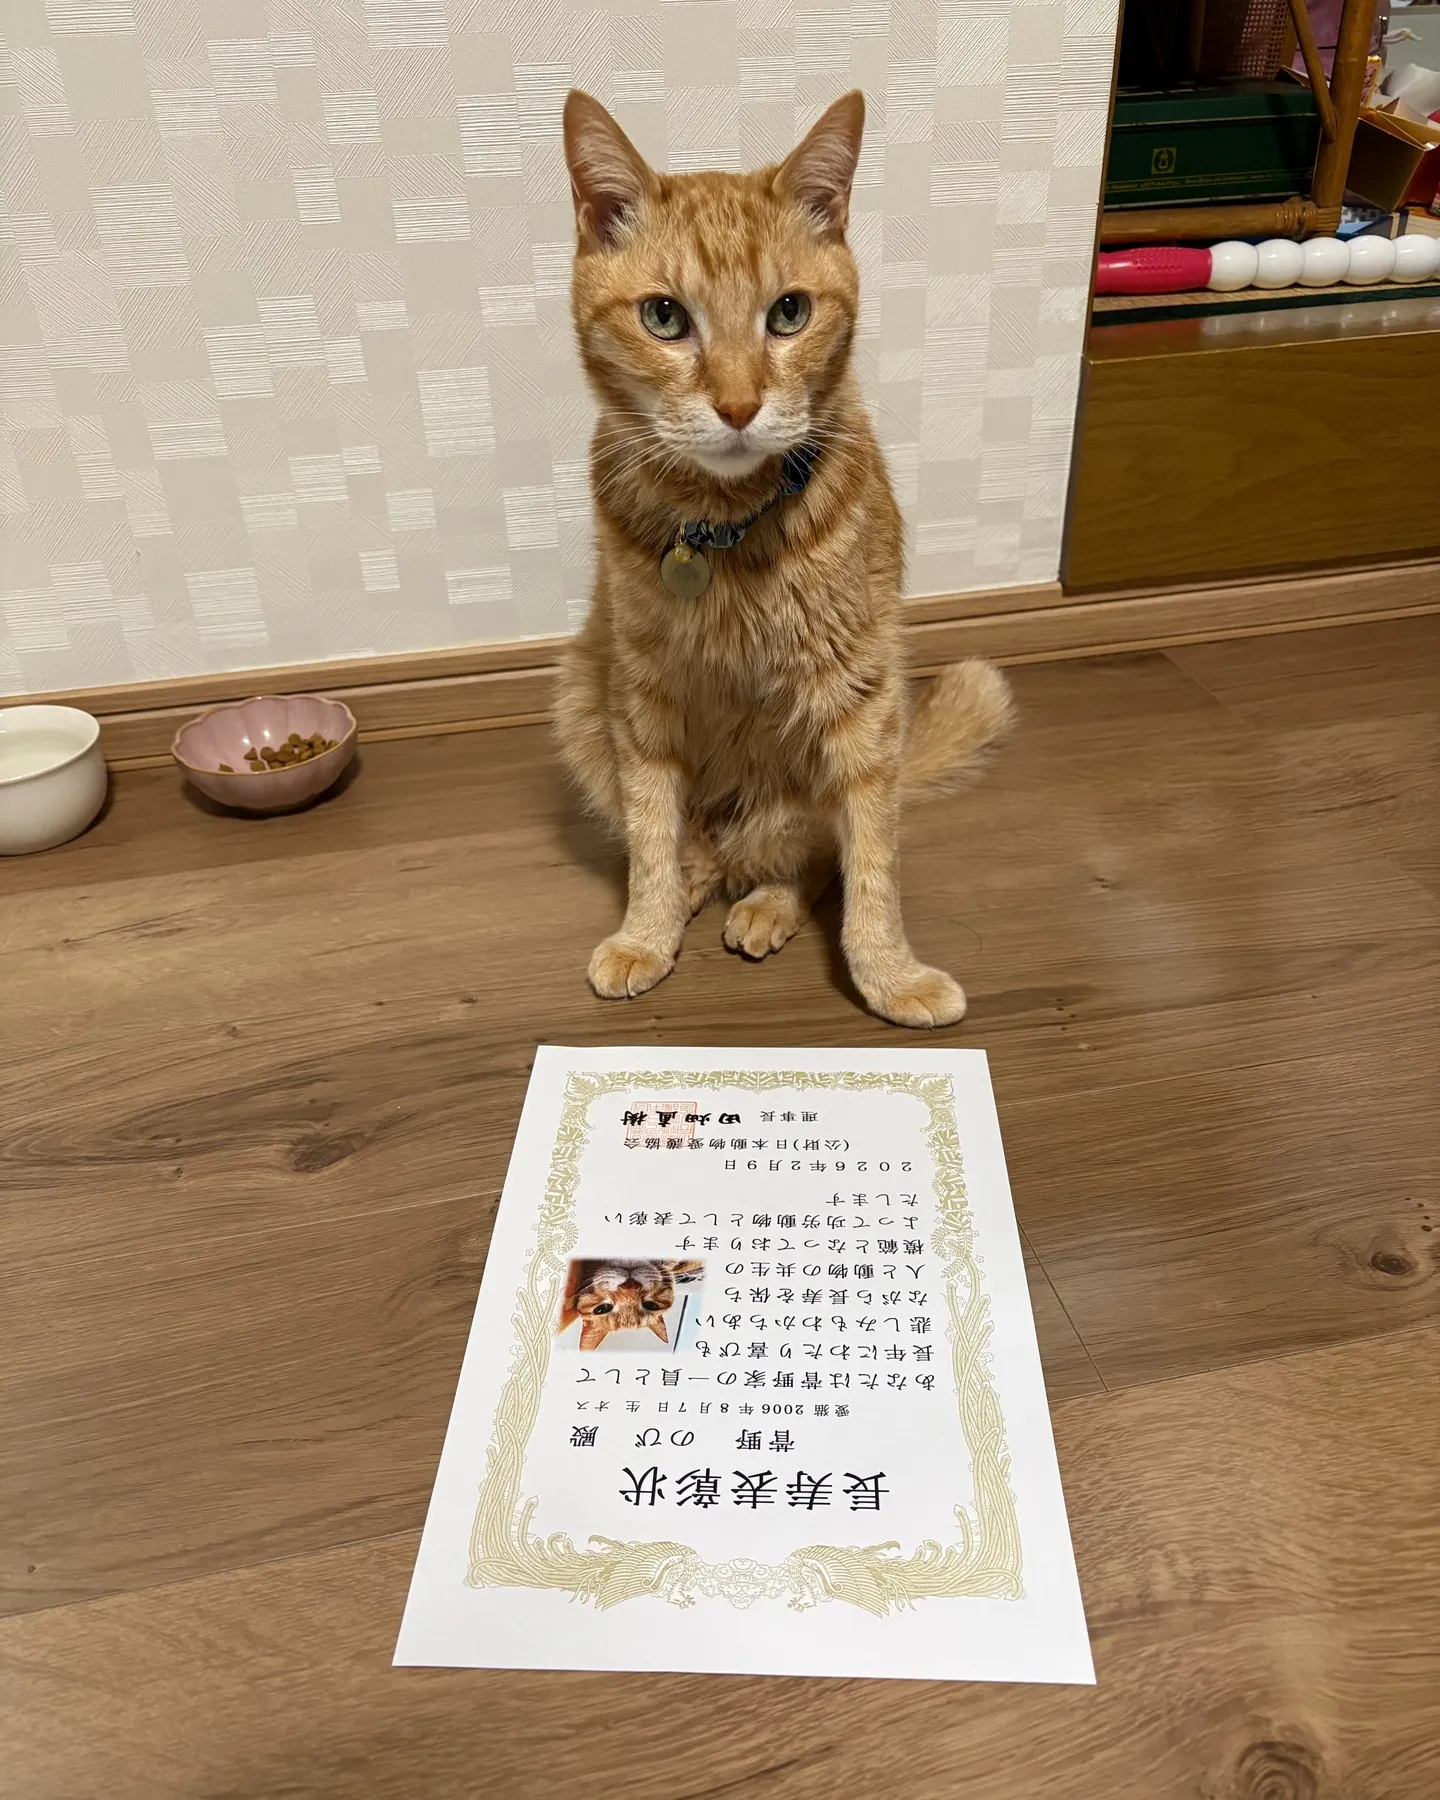 長寿表彰状
菅野 のび 殿
愛猫 2006年8月7日 生 オス
あなたは菅野家の一員として
長年にわたり喜びも
悲しみもわかちあい
ながら長寿を保ち
人と動物の共生の
模範となっております
よって功労動物として表彰い
たします
2026年2月9日
(公財)日本動物愛護協会
理事長 田畑直樹